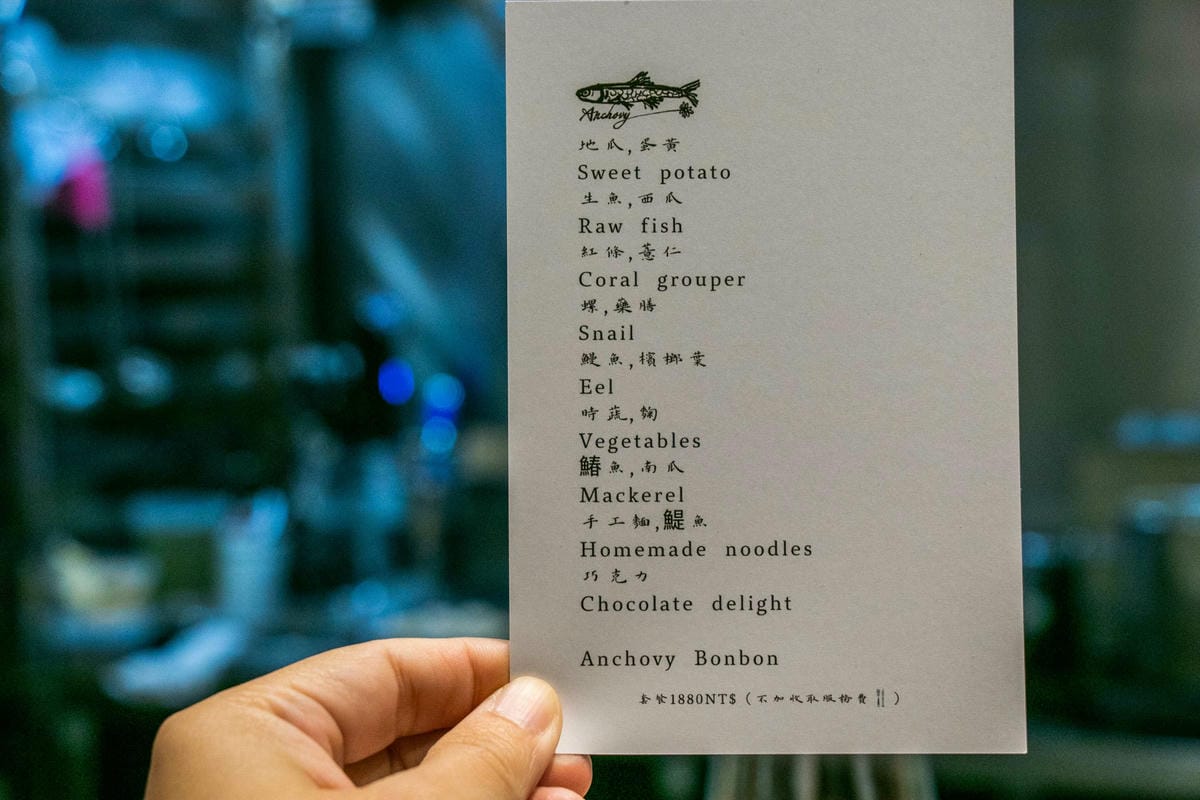 Anchovy
地瓜,蛋黃
Sweet potato
生魚,西瓜
Raw fish
紅條,薏仁
Coral grouper
螺,藥膳
Snail
鰻魚,檳榔葉
Eel
時蔬,麴
Vegetables
鰆魚,南瓜
Mackerel
手工麵,鯷魚
Homemade noodles
巧克力
Chocolate delight
Anchovy Bonbon
套餐1880NT$(不加收取服務費)